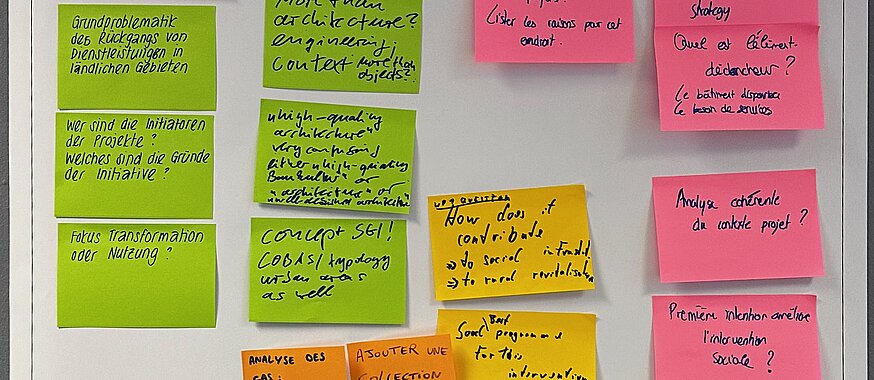 Grundproblematik
des Rückgangs von
Dienstleistungen in
ländlichen Gebieten
Wer sind die Initiatoren
der Projekte?
Welches sind die Gründe
der Initiative?
Fokus Transformation
oder Nutzung?
More than
architecture?
engineering,
context more than
objects?
"high-quality
architecture"
very confusing
either "high-quality
Baukultur" or
"architecture" or
concept SGI!
COBAS/typology
urban areas
as well
ANALYSE DES
CAS:
AJOUTER UNE
COLLECTION
Lister les raisons pour cet
endroit.
How does it
contribute
⇒ to social
⇒ to rural revitalisation
Best
programme
for this
intervention
strategy
Quel est l'élément-
déclencheur?
le besoin de services
Analyse cohérente
du contexte projet?
Première intention améliore
l'intervention
sociale?